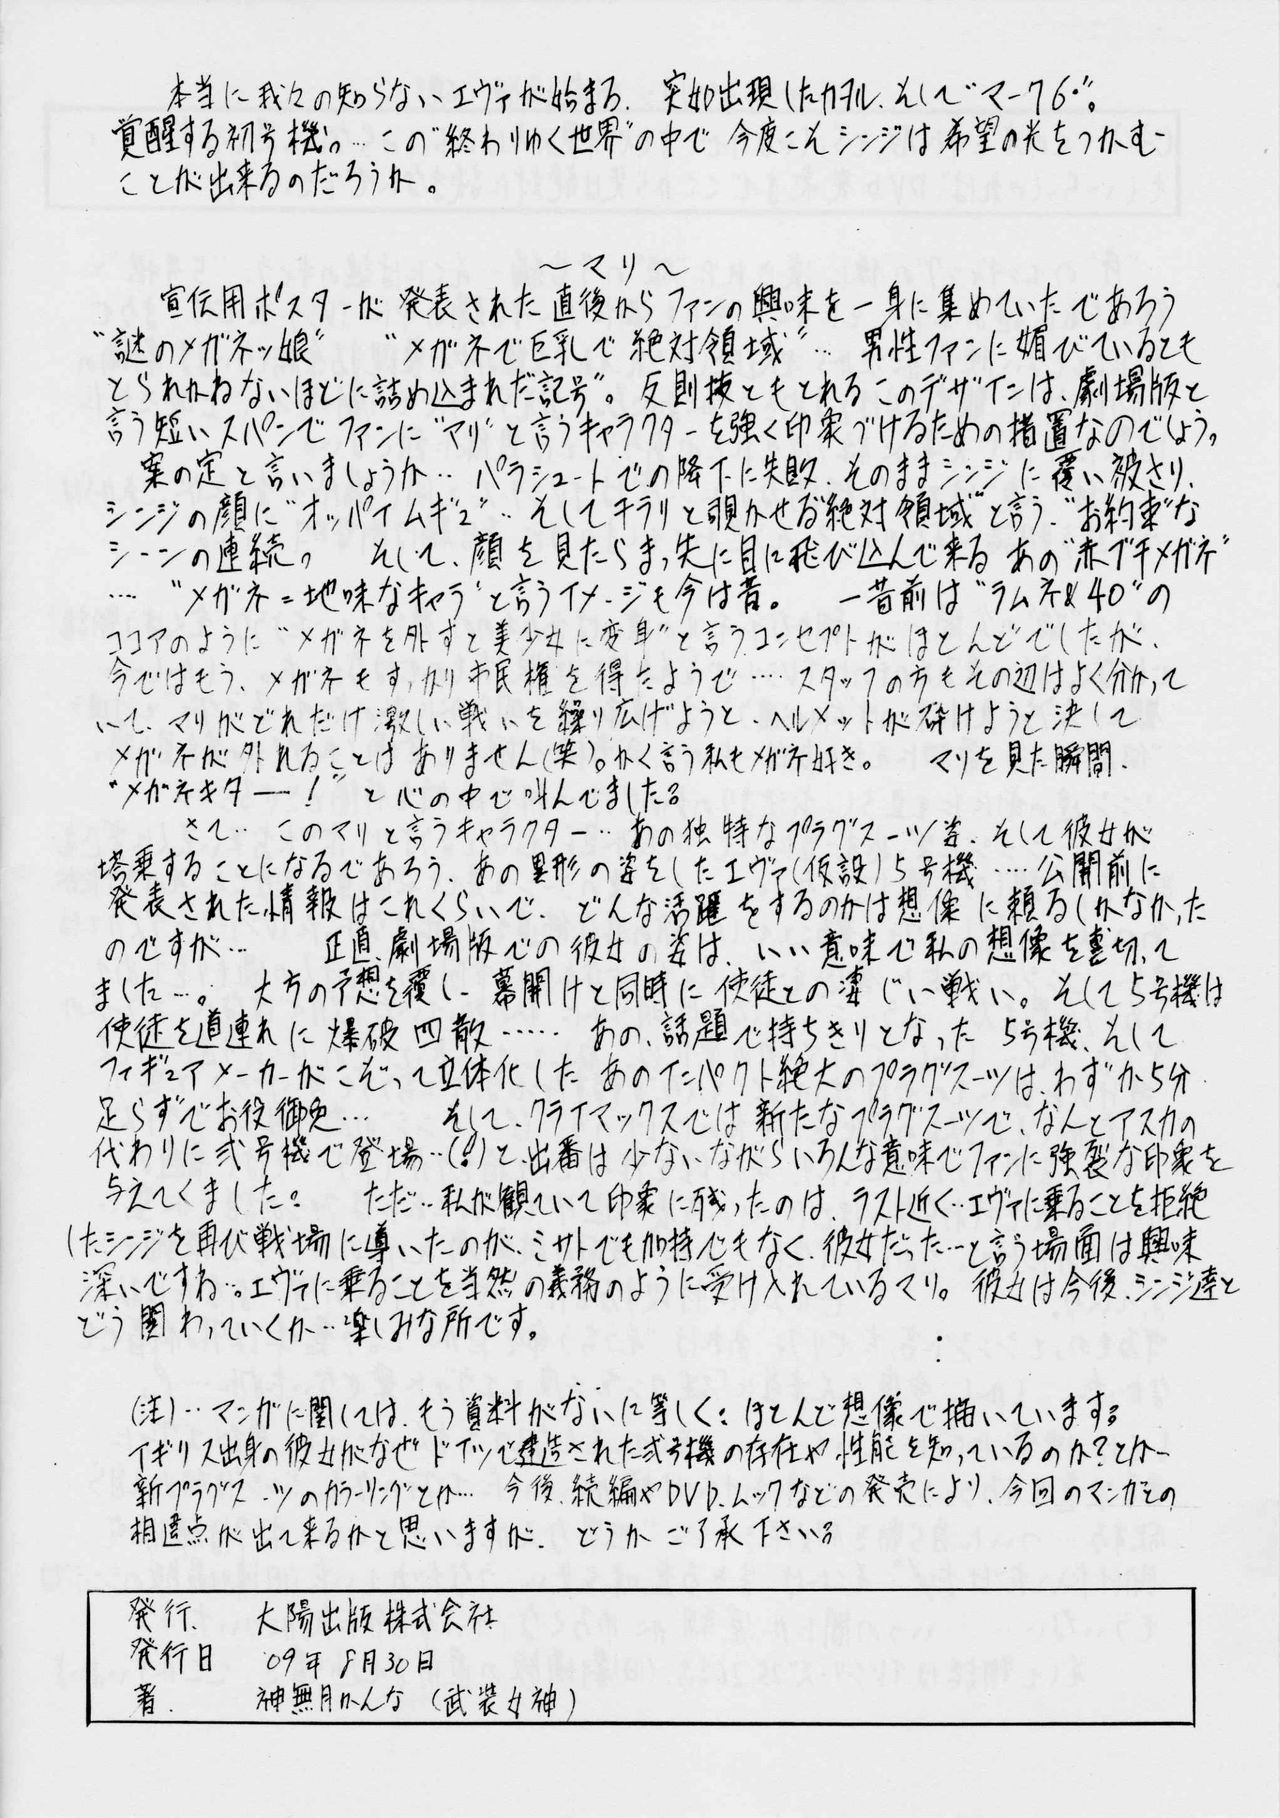 本当に我々の知らないエヴァが始まる. 突如出現したカヲル、そして"マーク6"。
覚醒する初号機。… この"終わりゆく世界"の中で 今度こそシンジは希望の光をつかむ
ことが出来るのだろうか。
～マリ～
宣伝用ポスターが 発表された直後から ファンの興味を 一身に集めていたであろう
"謎のメガネッ娘" "メガネで巨乳で絶対領域"… 男性ファンに媚びているとも
とられかねないほどに詰め込まれだ記号"。反則技ともとれるこのデザインは、劇場版と
言う短いスパンでファンに"マリ"と言うキャラクターを強く印象づけるための措置なのでしょう。
案の定と言いましょうか… パラシュートでの降下に失敗、そのままシンジに覆い被さり、
シンジの顔に"オッパイムギュ"… そしてチラリと覗かせる"絶対領域"と言う、"お約束"な
シーンの連続。 そして、顔を見たらまっ先に目に飛び込んで来る あの"赤ブチメガネ"
… "メガネ=地味なキャラ"と言うイメージも今は昔。 一昔前は"ラムネ&40"の
ココアのように"メガネを外すと美少女に変身"と言うコンセプトがほとんどでしたが、
今ではもう、メガネもすっかり市民権を得たようで…. スタッフの方もその辺はよく分かって
いて、マリがどれだけ激しい戦いを繰り広げようと、ヘルメットが砕けようと決して
メガネが外れることはありません(笑)。かく言う私もメガネ好き。 マリを見た瞬間、
"メガネキター!" と心の中で叫んでました。
さて… このマリと言うキャラクター… あの独特なプラグスーツ姿、そして彼女が
塔乗することになるであろう、あの異形の姿をしたエヴァ(仮設)5号機 …‥公開前に
発表された情報はこれくらいで、どんな活躍をするのかは想像に頼るしかなかった
のですが… 正直、劇場版での彼女の姿は、いい意味で私の想像を裏切って
ました…。 大方の予想を覆し、幕開けと同時に使徒との凄じい戦い。そして5号機は
使徒を道連れに爆破四散…… あの、話題で持ちきりとなった 5号機、そして
フィギュアメーカーがこぞって立体化した あのインパクト絶大のプラグスーツは、わずか5分
足らずでお役御免… そして、クライマックスでは新たなプラグスーツで、なんとアスカの
代わりに弐号機で登場…(!)と、出番は少ないながらいろんな意味でファンに強裂な印象を
与えてくました。 ただ… 私が観ていて印象に残ったのは、ラスト近く… エヴァに乗ることを拒絶
したシンジを再び戦場に導いたのが、ミサトでも加持でもなく、彼女だった…と言う場面は興味
深いですね…。エヴァに乗ることを当然の義務のように受け入れているマリ。彼女は今後、シンジ達と
どう関わっていくか… 楽しみな所です。
(注)… マンガに関しては、もう資料がないに等しく、ほとんど想像で描いています。
イギリス出身の彼女がなぜドイツで建造された弐号機の存在や性能を知っているのか?とか…
新プラグスーツのカラーリングとか… 今後、続編やDVD、ムックなどの発売により、今回のマンガとの
相違点が出て来るかと思いますが、どうか ご了承下さい。
発行. 大陽出版株式会社
発行日 '09年 8月30日
著. 神無月かんな (武装女神)